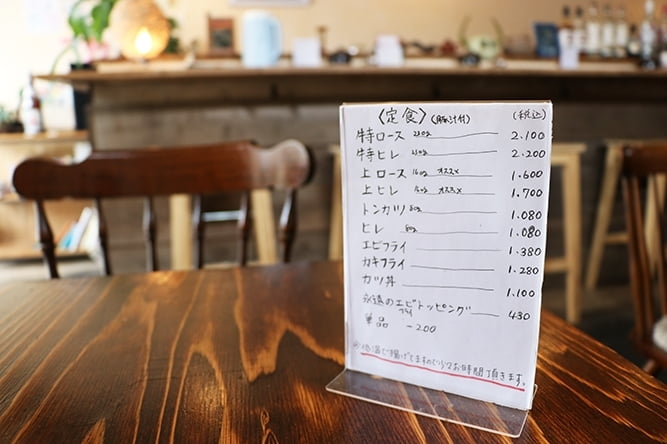 〈定食〉(豚汁付) (税込)
特ロース 250g 2.100
特ヒレ 250g 2.200
上ロース 160g オススメ 1.600
上ヒレ オススメ 1.700
トンカツ 80g 1.080
ヒレ 80g 1.080
エビフライ 1.380
カキフライ 1.280
カツ丼 1.100
永遠のエビフライトッピング 430
単品 -200
低温で揚げてますので少々お時間頂きます。